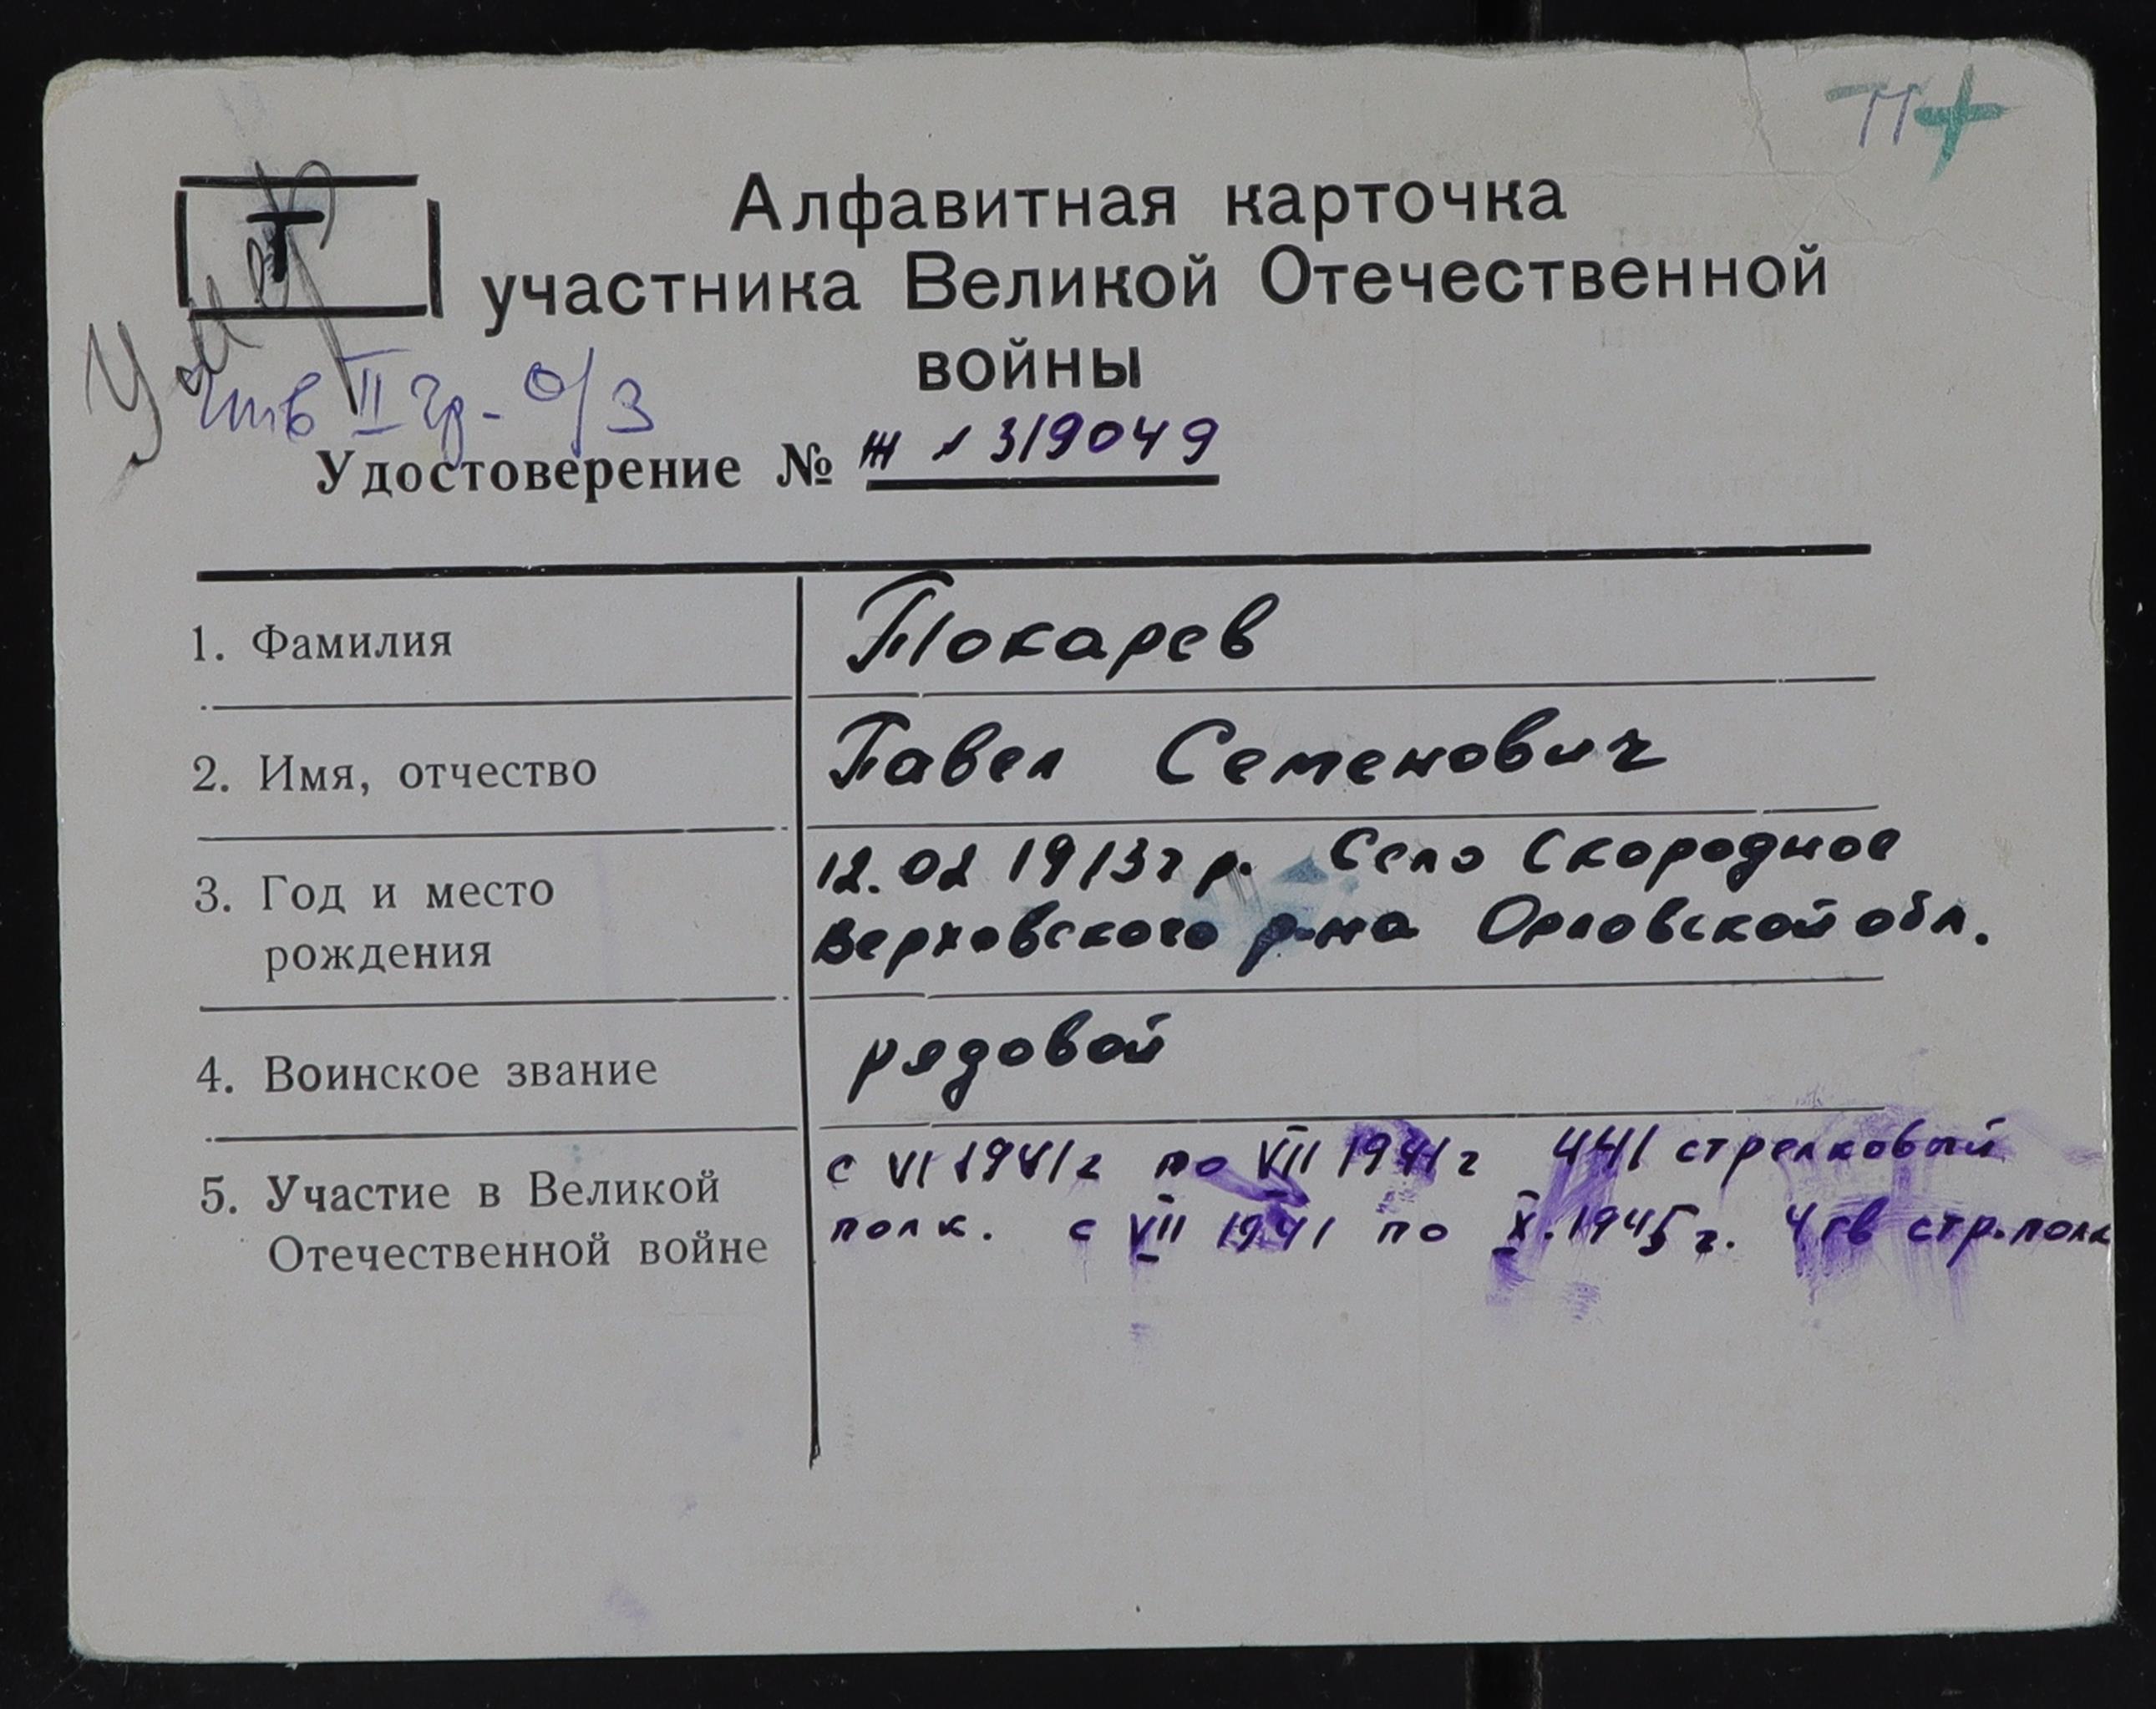 Т
Умер
П+
Алфавитная карточка
участника Великой Отечественной
войны
инв II гр. о/з
Удостоверение № Ж № 319049
1. Фамилия
Токарев
2. Имя, отчество
Павел Семенович
3. Год и место
рождения
12.02 1913г р. Село Скородное
Верховского р-на Орловской обл.
4. Воинское звание
рядовой
5. Участие в Великой
Отечественной войне
с VI 1941г по VII 1941г 441 стрелковый
полк. с VII 1941 по X.1945г. 4 гв стр.полк